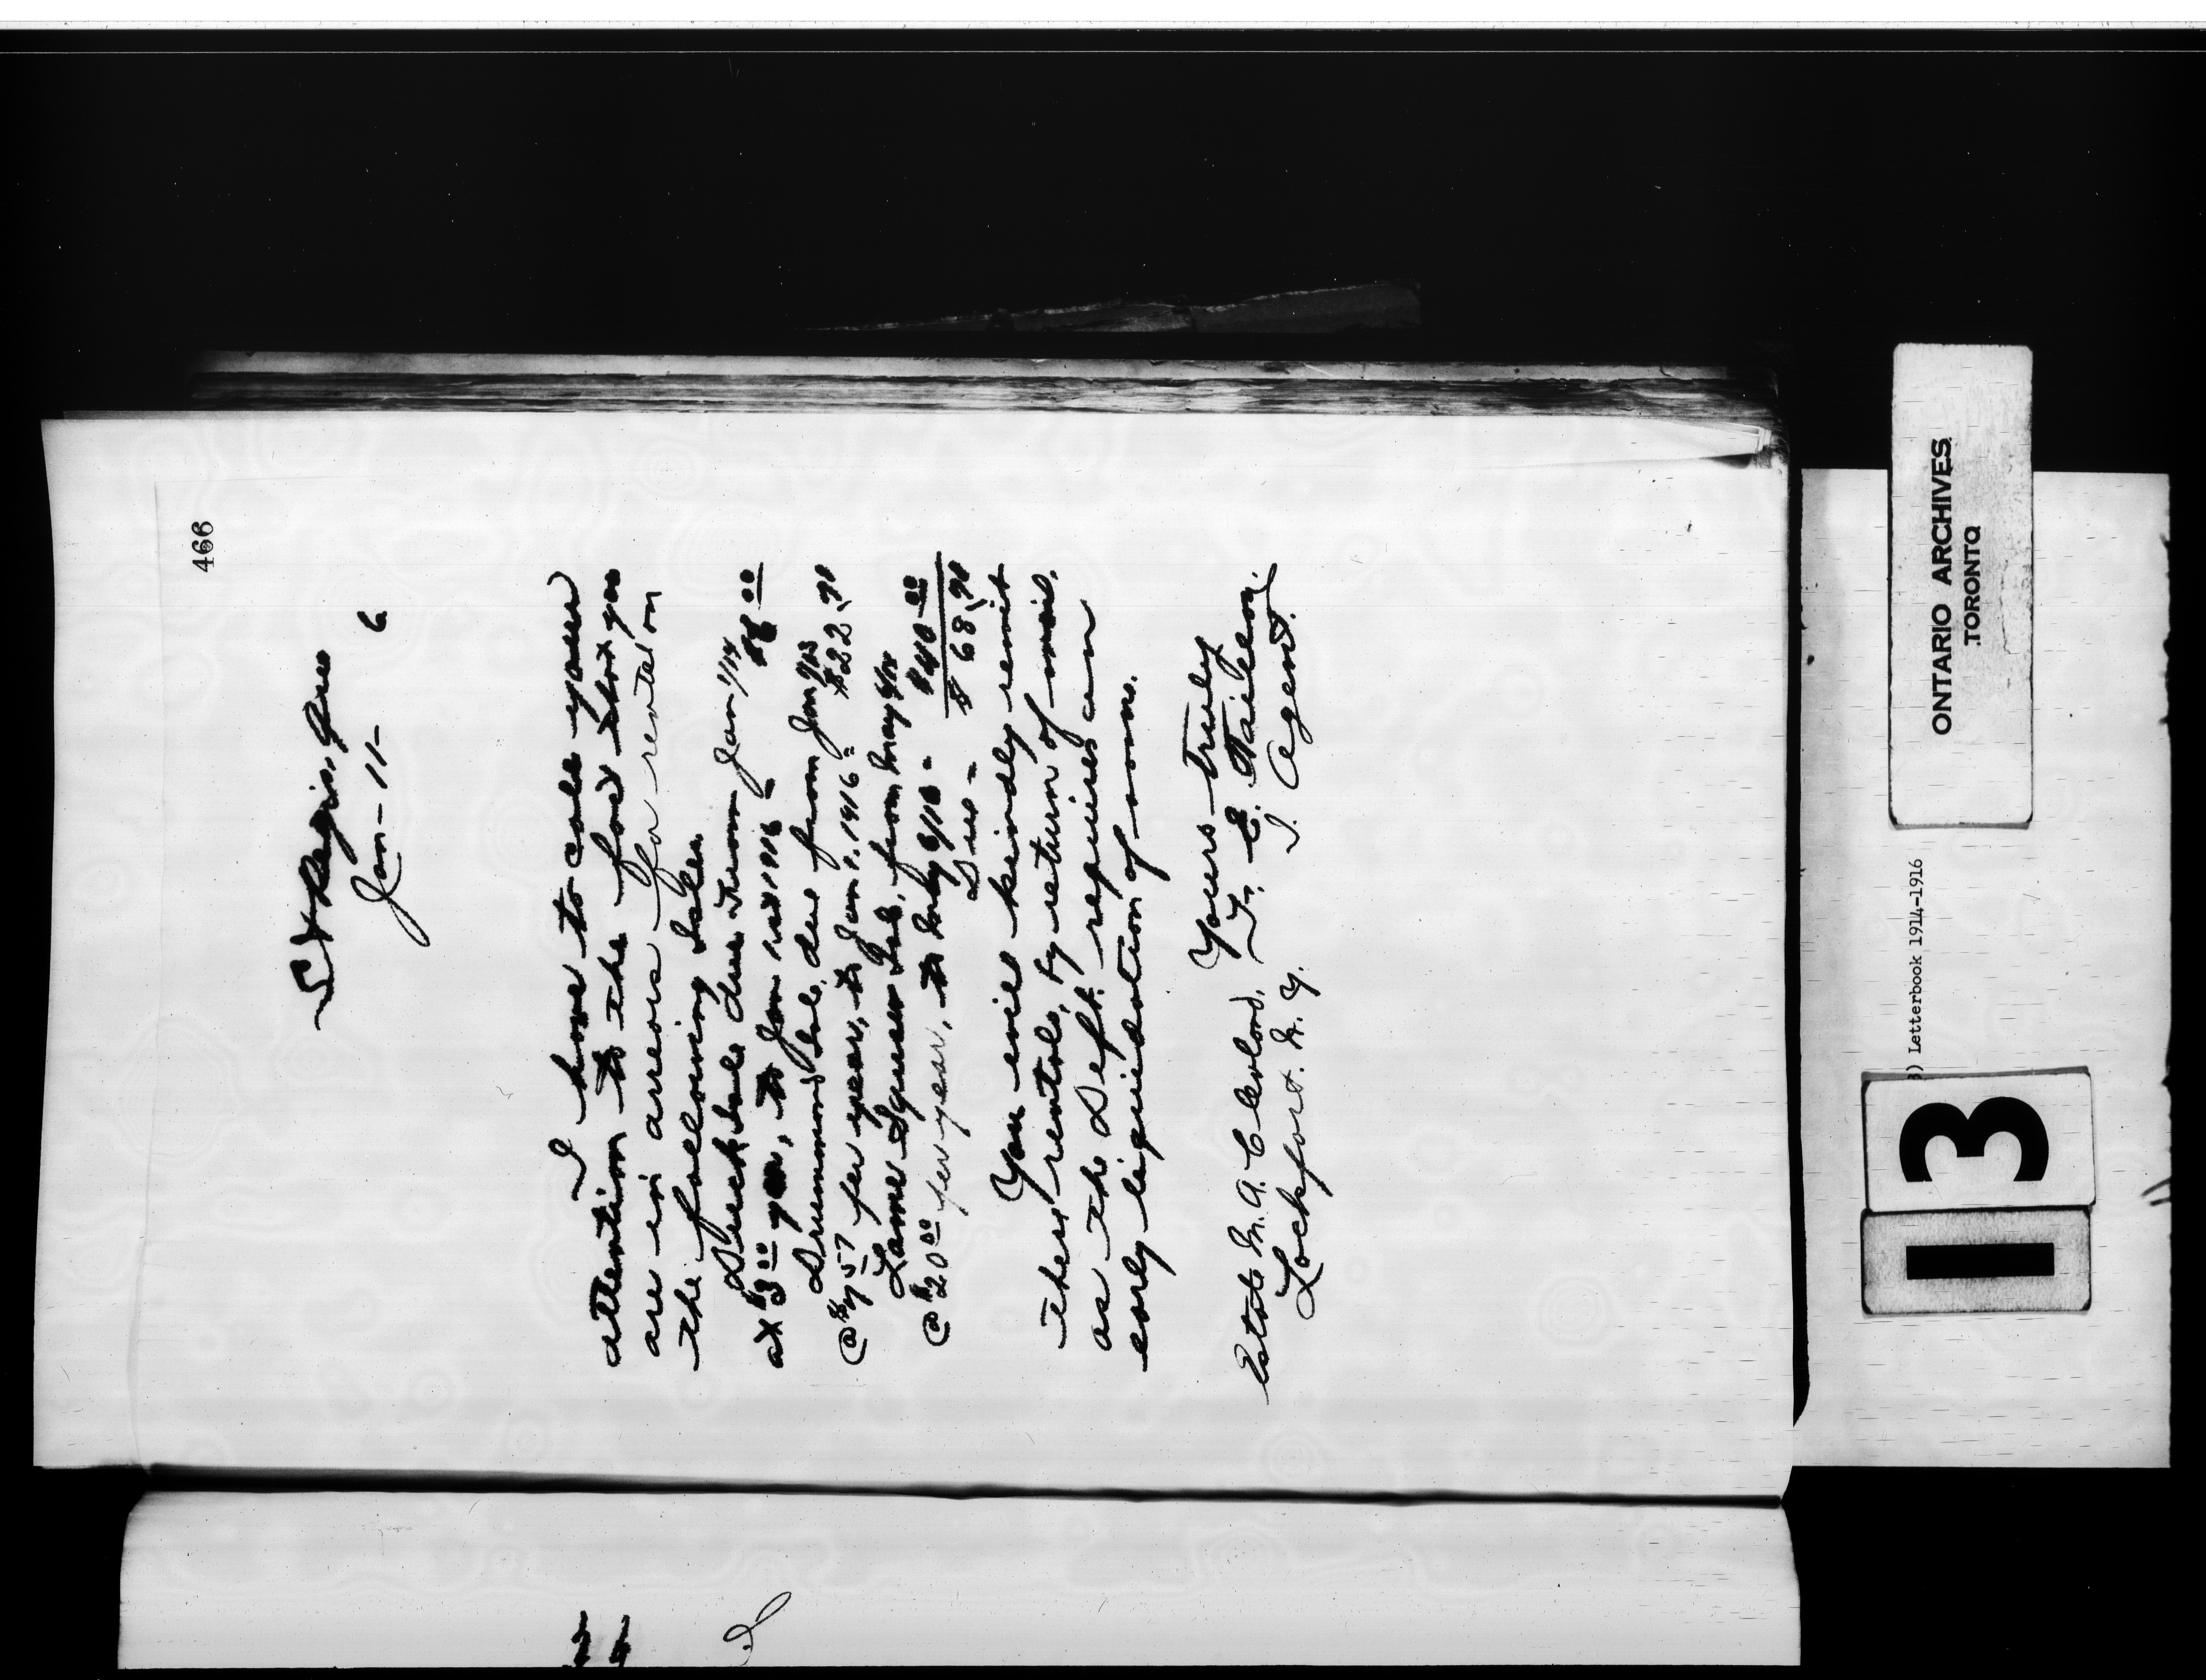 466
St Regis, Que
Jan - 11 - 6
I have to call your
attention to the fact that you
are in arrears for rental on
the following Isles.
Duck Isle due from Jan 1/14
at $3.00 year, to Jan 1st 1916 - $6.00
Drummond Isle, due from Jan 1/13
@ $7.57 per year, to Jan 1. 1916 = $22.71
Squaw Isle, from May 6/14
@ $20.00 per year, to May 6/16 - $40.00
Due - $68.71
You will kindly remit
these rentals, by return of mail.
as the Dept. requires an
early liquidation of same.
Yours truly
Estate M. A. Cleveland, F. E. Taillon.
Lockport. N. Y. I. Agent.
ONTARIO ARCHIVES
TORONTO
) Letterbook 1914-1916
13